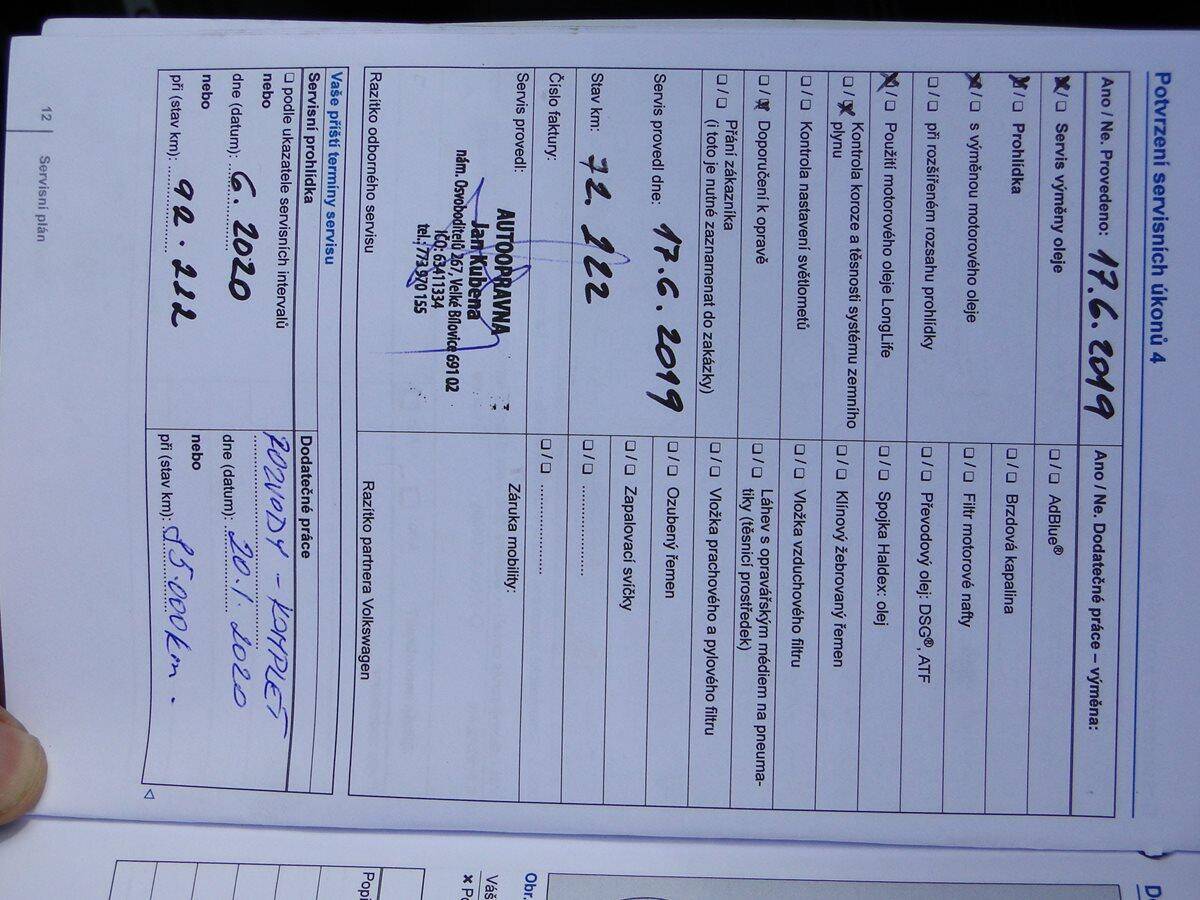 Potvrzení servisních úkonů 4
Ano / Ne. Provedeno: 17.6.2019
Servis výměny oleje
Prohlídka
s výměnou motorového oleje
při rozšířeném rozsahu prohlídky
Použití motorového oleje LongLife
Kontrola koroze a těsnosti systému zemního
plynu
Kontrola nastavení světlometů
Doporučení k opravě
Přání zákazníka
(i toto je nutné zaznamenat do zakázky)
Servis provedl dne: 17.6.2019
Stav km: 72.222
Číslo faktury:
Servis provedl:
AUTOOPRAVNA
Jan Kubena
nám. Osvoboditelů 267, Velké Bílovice 691 02
IČO: 63411334
tel.: 773 970 155
Razítko odborného servisu
Ano / Ne. Dodatečné práce – výměna:
AdBlue®
Brzdová kapalina
Filtr motorové nafty
Převodový olej: DSG®, ATF
Spojka Haldex: olej
Klínový žebrovaný řemen
Vložka vzduchového filtru
Láhev s opravářským médiem na pneuma-
tiky (těsnicí prostředek)
Vložka prachového a pylového filtru
Ozubený řemen
Zapalovací svíčky
Záruka mobility:
Razítko partnera Volkswagen
Vaše příští termíny servisu
Servisní prohlídka
podle ukazatele servisních intervalů
nebo
dne (datum): 6.2020
nebo
při (stav km): 92.222
Dodatečné práce
ROZVODY - KOMPLET
dne (datum): 20.1.2020
nebo
při (stav km): 85.000km.
12 Servisní plán
Obr.
Váš
Popi